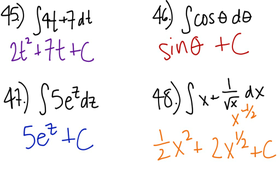 45) ∫4t+7 dt
2t² + 7t + C
46.) ∫cosθ dθ
sinθ + C
47.) ∫5e^z dz
5e^z + C
48.) ∫x + 1/√x dx
x^-1/2
1/2 x² + 2x^1/2 + C